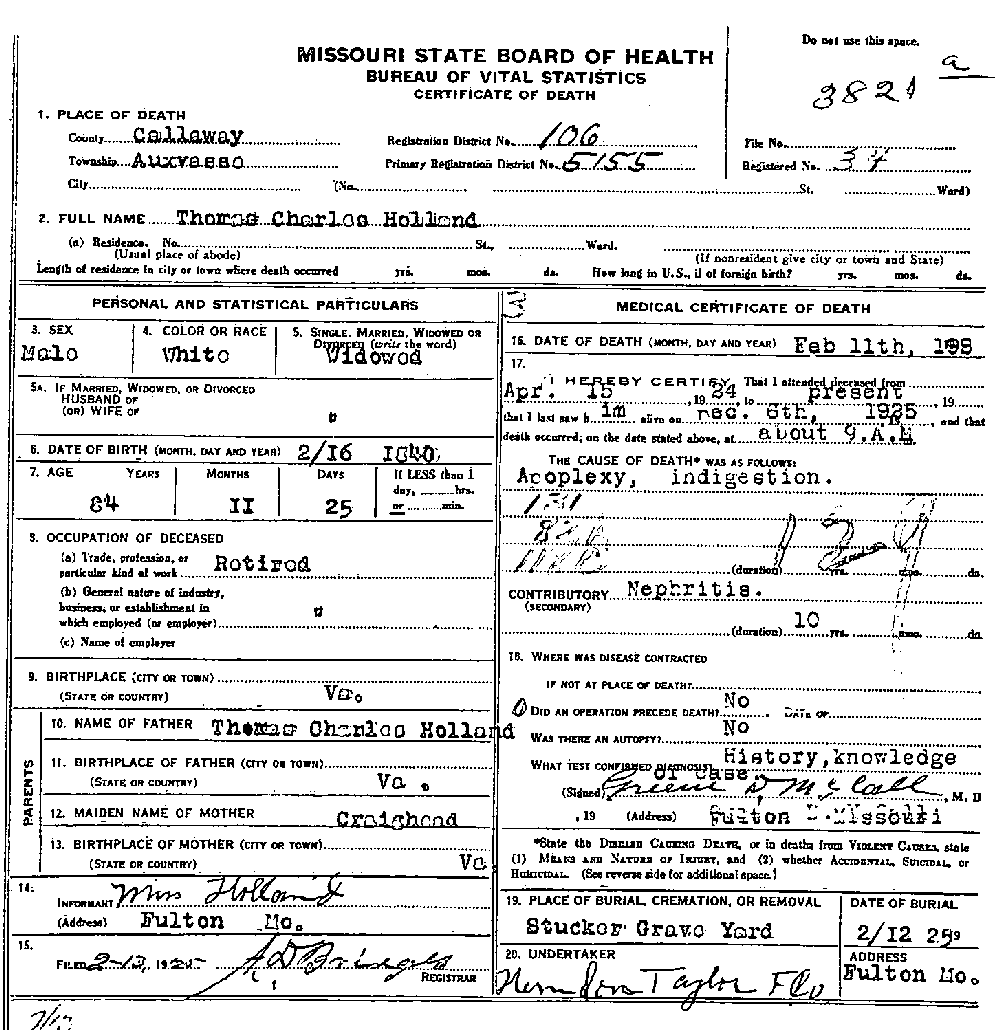 Do not use this space.
MISSOURI STATE BOARD OF HEALTH
BUREAU OF VITAL STATISTICS
CERTIFICATE OF DEATH
a
3821
1. PLACE OF DEATH
County Callaway Registration District No. 106 File No.
Township Auxvasse Primary Registration District No. 5155 Registered No. 34
City (No. St. Ward)
2. FULL NAME Thomas Charles Holland
(a) Residence. No. St., Ward.
(Usual place of abode) (If nonresident give city or town and State)
Length of residence in city or town where death occurred yrs. mos. ds. How long in U.S., if of foreign birth? yrs. mos. ds.
PERSONAL AND STATISTICAL PARTICULARS
3. SEX 4. COLOR OR RACE 5. SINGLE, MARRIED, WIDOWED OR DIVORCED (write the word)
Male White Widowed
5A. IF MARRIED, WIDOWED, OR DIVORCED
HUSBAND OF
(OR) WIFE OF
6. DATE OF BIRTH (MONTH, DAY AND YEAR) 2/16 1840
7. AGE YEARS MONTHS DAYS If LESS than 1 day, hrs. or min.
84 II 25
8. OCCUPATION OF DECEASED
(a) Trade, profession, or
particular kind of work Retired
(b) General nature of industry,
business, or establishment in
which employed (or employer)
(c) Name of employer
9. BIRTHPLACE (CITY OR TOWN)
(STATE OR COUNTRY) Va.
PARENTS
10. NAME OF FATHER Thomas Charles Holland
11. BIRTHPLACE OF FATHER (CITY OR TOWN)
(STATE OR COUNTRY) Va.
12. MAIDEN NAME OF MOTHER Craighead
13. BIRTHPLACE OF MOTHER (CITY OR TOWN)
(STATE OR COUNTRY) Va
14.
INFORMANT Miss Holland
(Address) Fulton Mo.
15.
FILED 2-13, 1925 REGISTRAR
MEDICAL CERTIFICATE OF DEATH
16. DATE OF DEATH (MONTH, DAY AND YEAR) Feb 11th,
17.
I HEREBY CERTIFY, That I attended deceased from
Apr. 15, 1924, to present, 19
that I last saw him alive on 6th, 1925, and that
death occurred, on the date stated above, at about 9.A.M
THE CAUSE OF DEATH* WAS AS FOLLOWS:
Apoplexy, indigestion.
131
(duration) yrs. mos. ds.
CONTRIBUTORY Nephritis.
(SECONDARY)
(duration) 10 yrs. mos. ds.
18. WHERE WAS DISEASE CONTRACTED
IF NOT AT PLACE OF DEATH?
0 DID AN OPERATION PRECEDE DEATH? No DATE OF
WAS THERE AN AUTOPSY? No
WHAT TEST CONFIRMED DIAGNOSIS? History, knowledge
of case
(Signed) Greene D McCall, M. D
, 19 (Address) Fulton Missouri
*State the DISEASE CAUSING DEATH, or in deaths from VIOLENT CAUSES, state
(1) MEANS AND NATURE OF INJURY, and (2) whether ACCIDENTAL, SUICIDAL, or
HOMICIDAL. (See reverse side for additional space.)
19. PLACE OF BURIAL, CREMATION, OR REMOVAL DATE OF BURIAL
Stucker Grave Yard 2/12
20. UNDERTAKER ADDRESS
Herndon Taylor Fulton Mo.